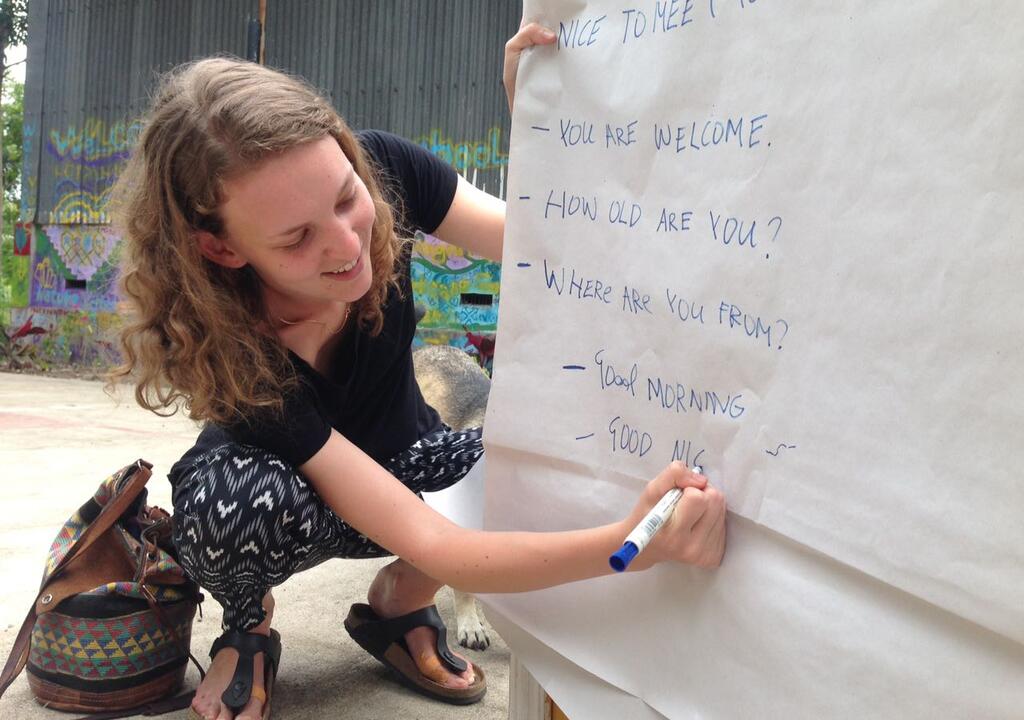 NICE TO MEET
- YOU ARE WELCOME.
- HOW OLD ARE YOU?
- WHERE ARE YOU FROM?
- Good MORNING
- GOOD NIG